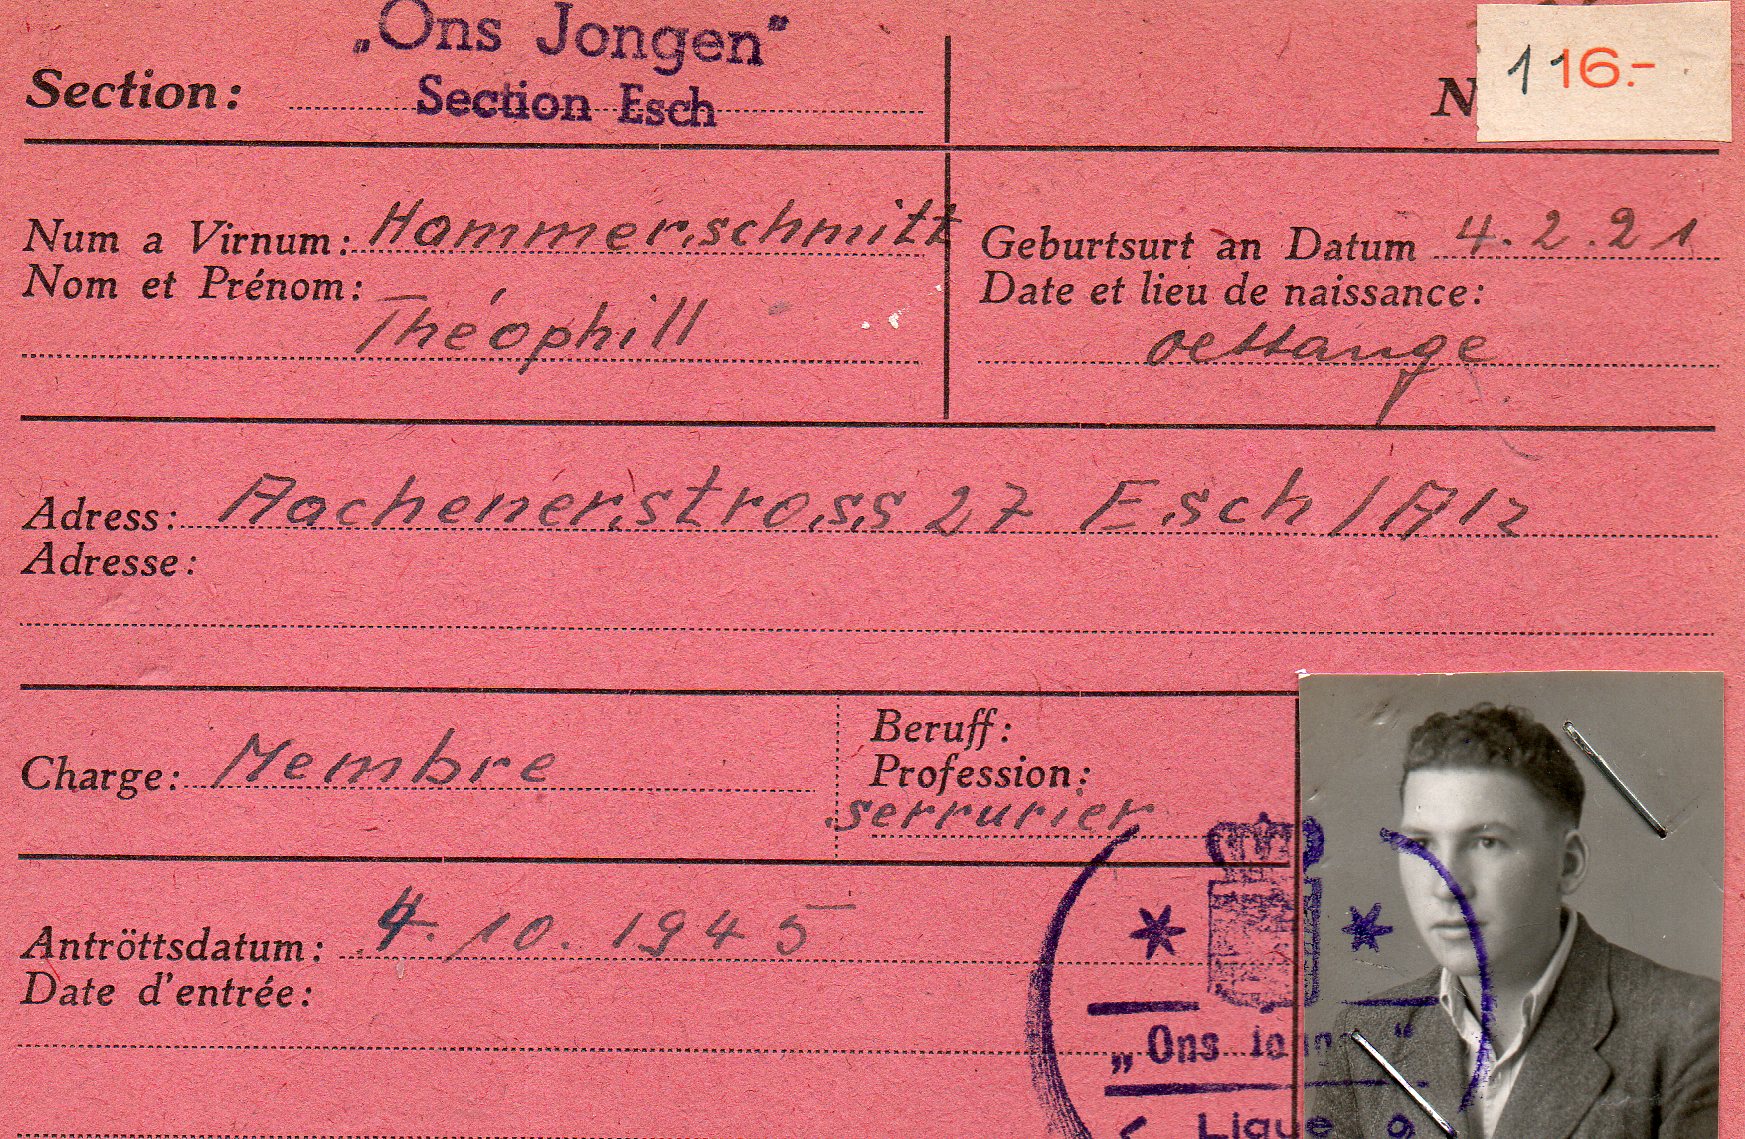 „Ons Jongen“
Section: Section Esch
N 116.-
Num a Virnum: Hammerschmitt
Nom et Prénom:
Théophill
Geburtsurt an Datum 4.2.21
Date et lieu de naissance:
oettange
Adress: Aachenerstross 27 Esch/Alz
Adresse:
Charge: Membre
Beruff:
Profession:
serrurier
Antröttsdatum: 4.10.1945
Date d'entrée:
„Ons
Ligue